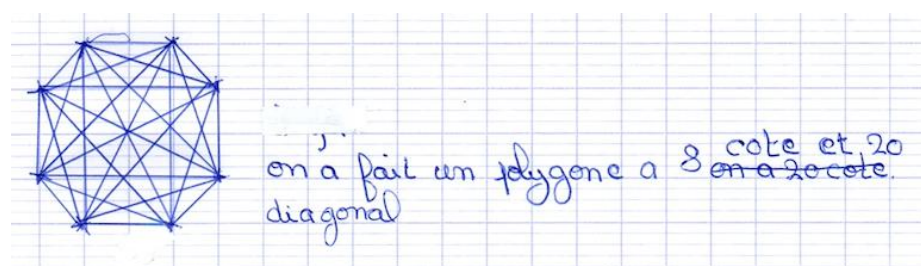 on a fait un polygone a 8 cote et 20
on a 20 cote.
diagonal